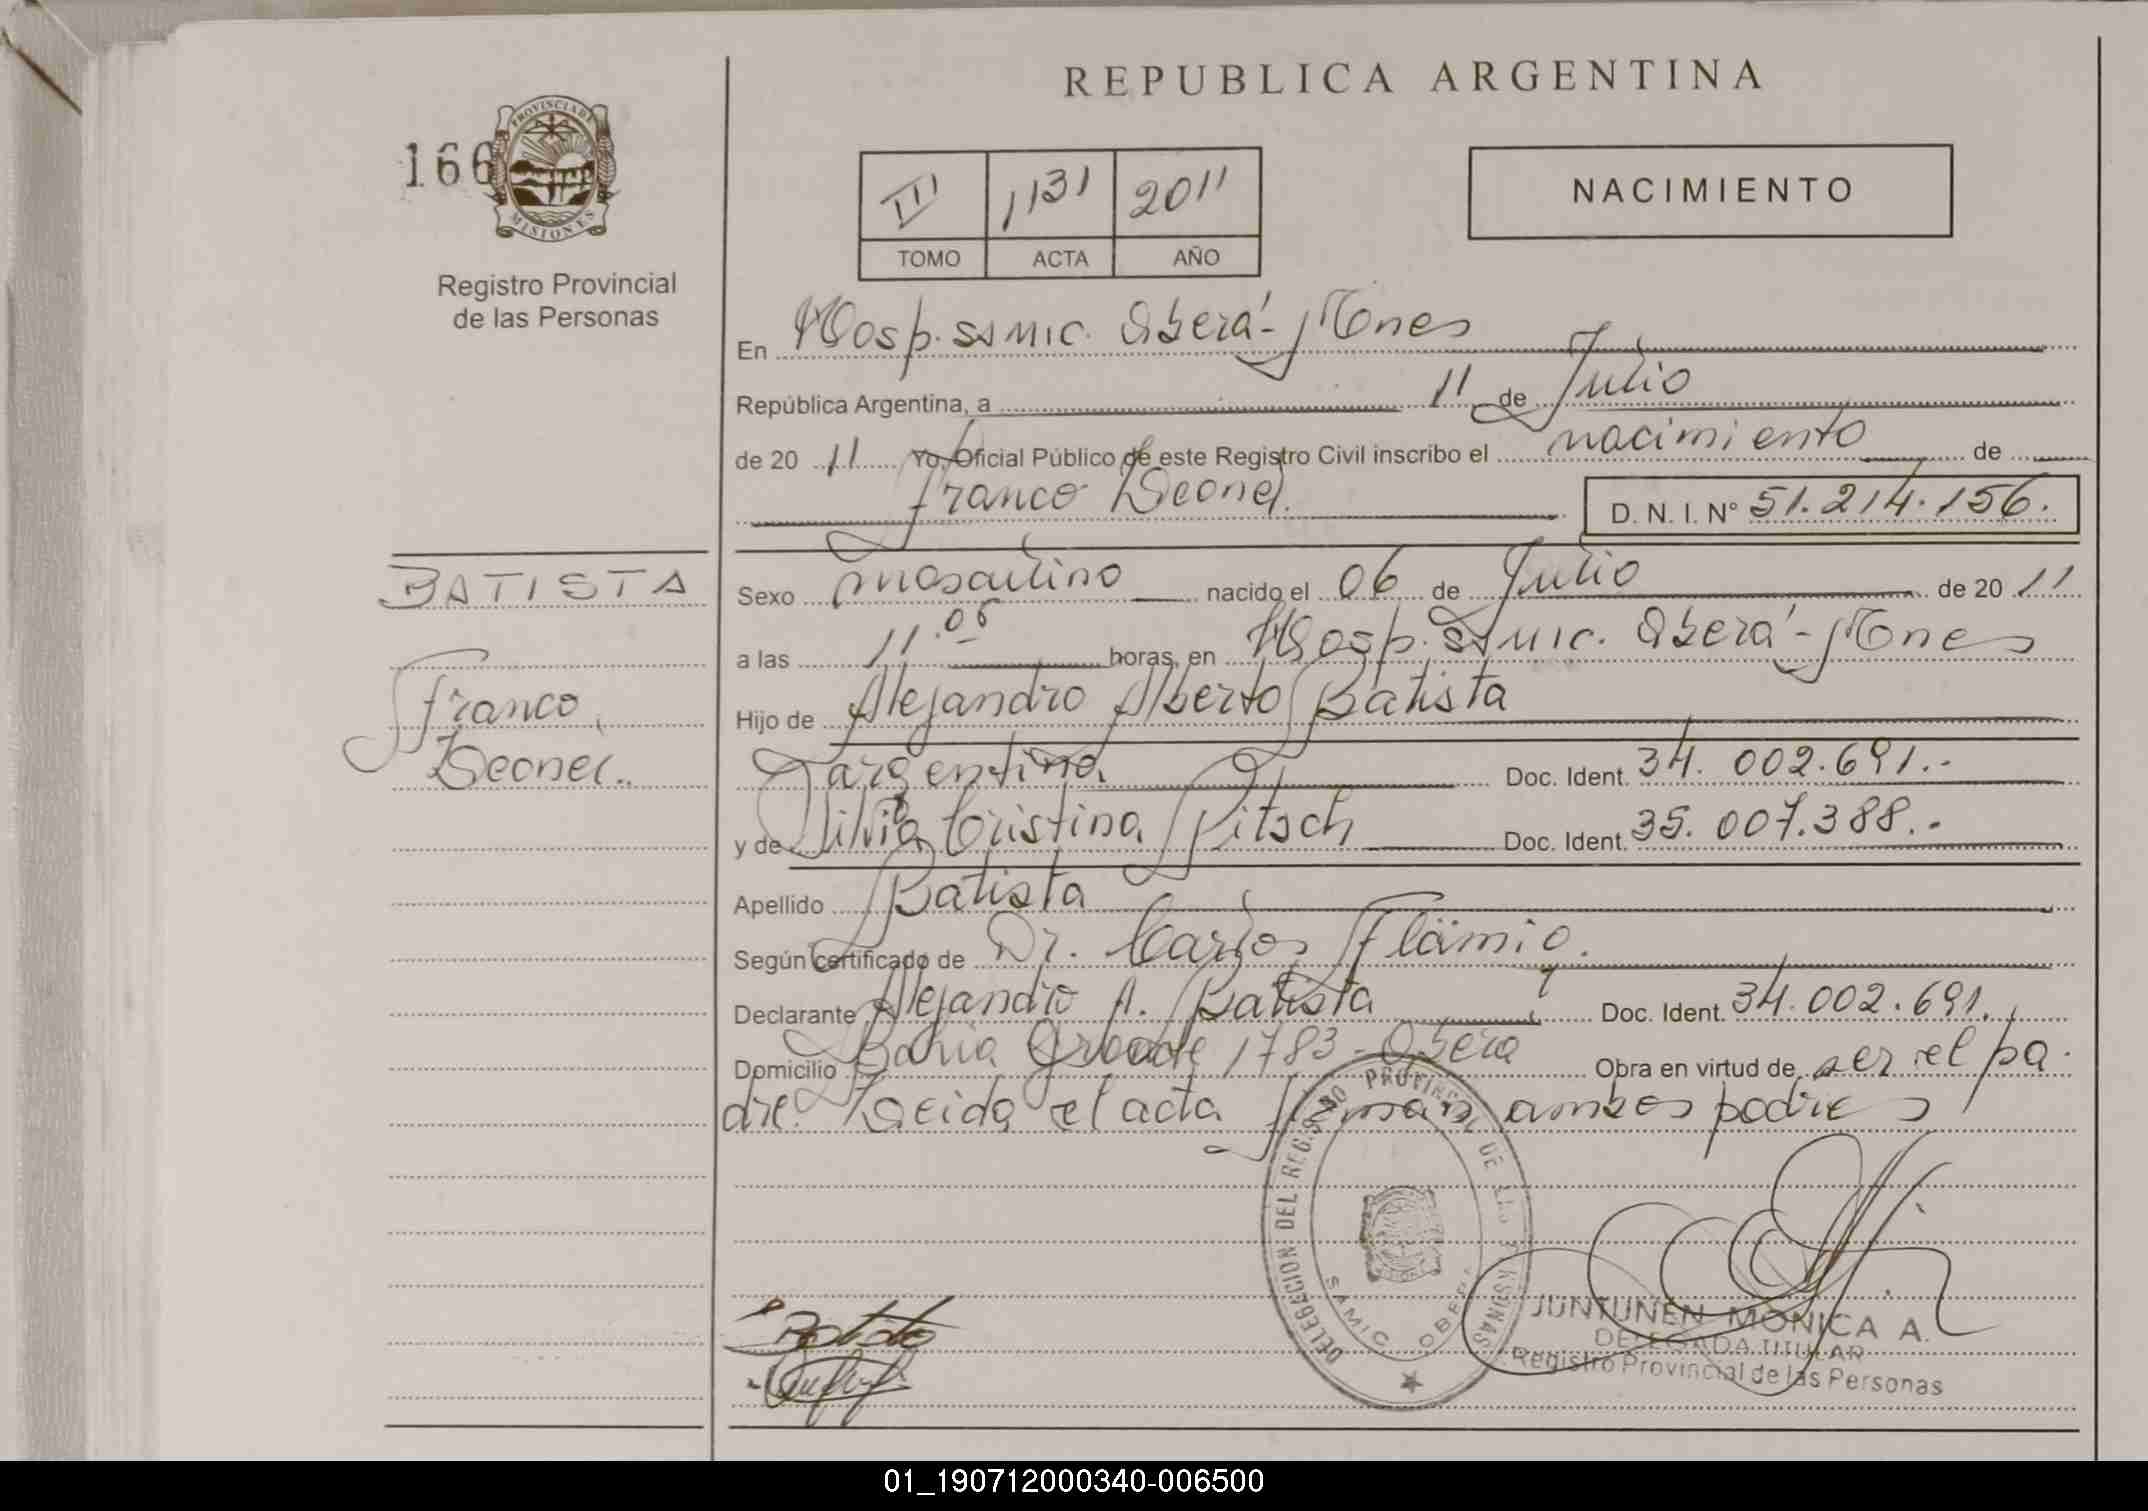 REPUBLICA ARGENTINA
166
PROVINCIA DE MISIONES
Registro Provincial
de las Personas
III 1131 2011
TOMO ACTA AÑO
NACIMIENTO
En Hosp. SAMIC. Oberá - Mnes
República Argentina, a 11 de Julio
de 20 11 Yo, Oficial Público de este Registro Civil inscribo el nacimiento de
Franco Leonel.
D. N. I. N° 51.214.156.
BATISTA
Franco
Leonel.
Sexo masculino nacido el 06 de Julio de 20 11
a las 11.05 horas, en Hosp. SAMIC. Oberá - Mnes
Hijo de Alejandro Alberto Batista
argentina. Doc. Ident. 34.002.691.-
y de Silvia Cristina Pitsch Doc. Ident. 35.007.388.-
Apellido Batista
Según certificado de Dr. Carlos
Declarante Alejandro A. Batista Doc. Ident. 34.002.691.
Domicilio Bahía Grande 1783 - Oberá Obra en virtud de ser el pa-
dre. Leida el acta firman ambos padres
DELEGACION DEL REGISTRO PROVINCIAL DE LAS PERSONAS
SAMIC OBERA
Batista
JUNTUNEN MONICA A.
DELEGADA TITULAR
Registro Provincial de las Personas
01_190712000340-006500